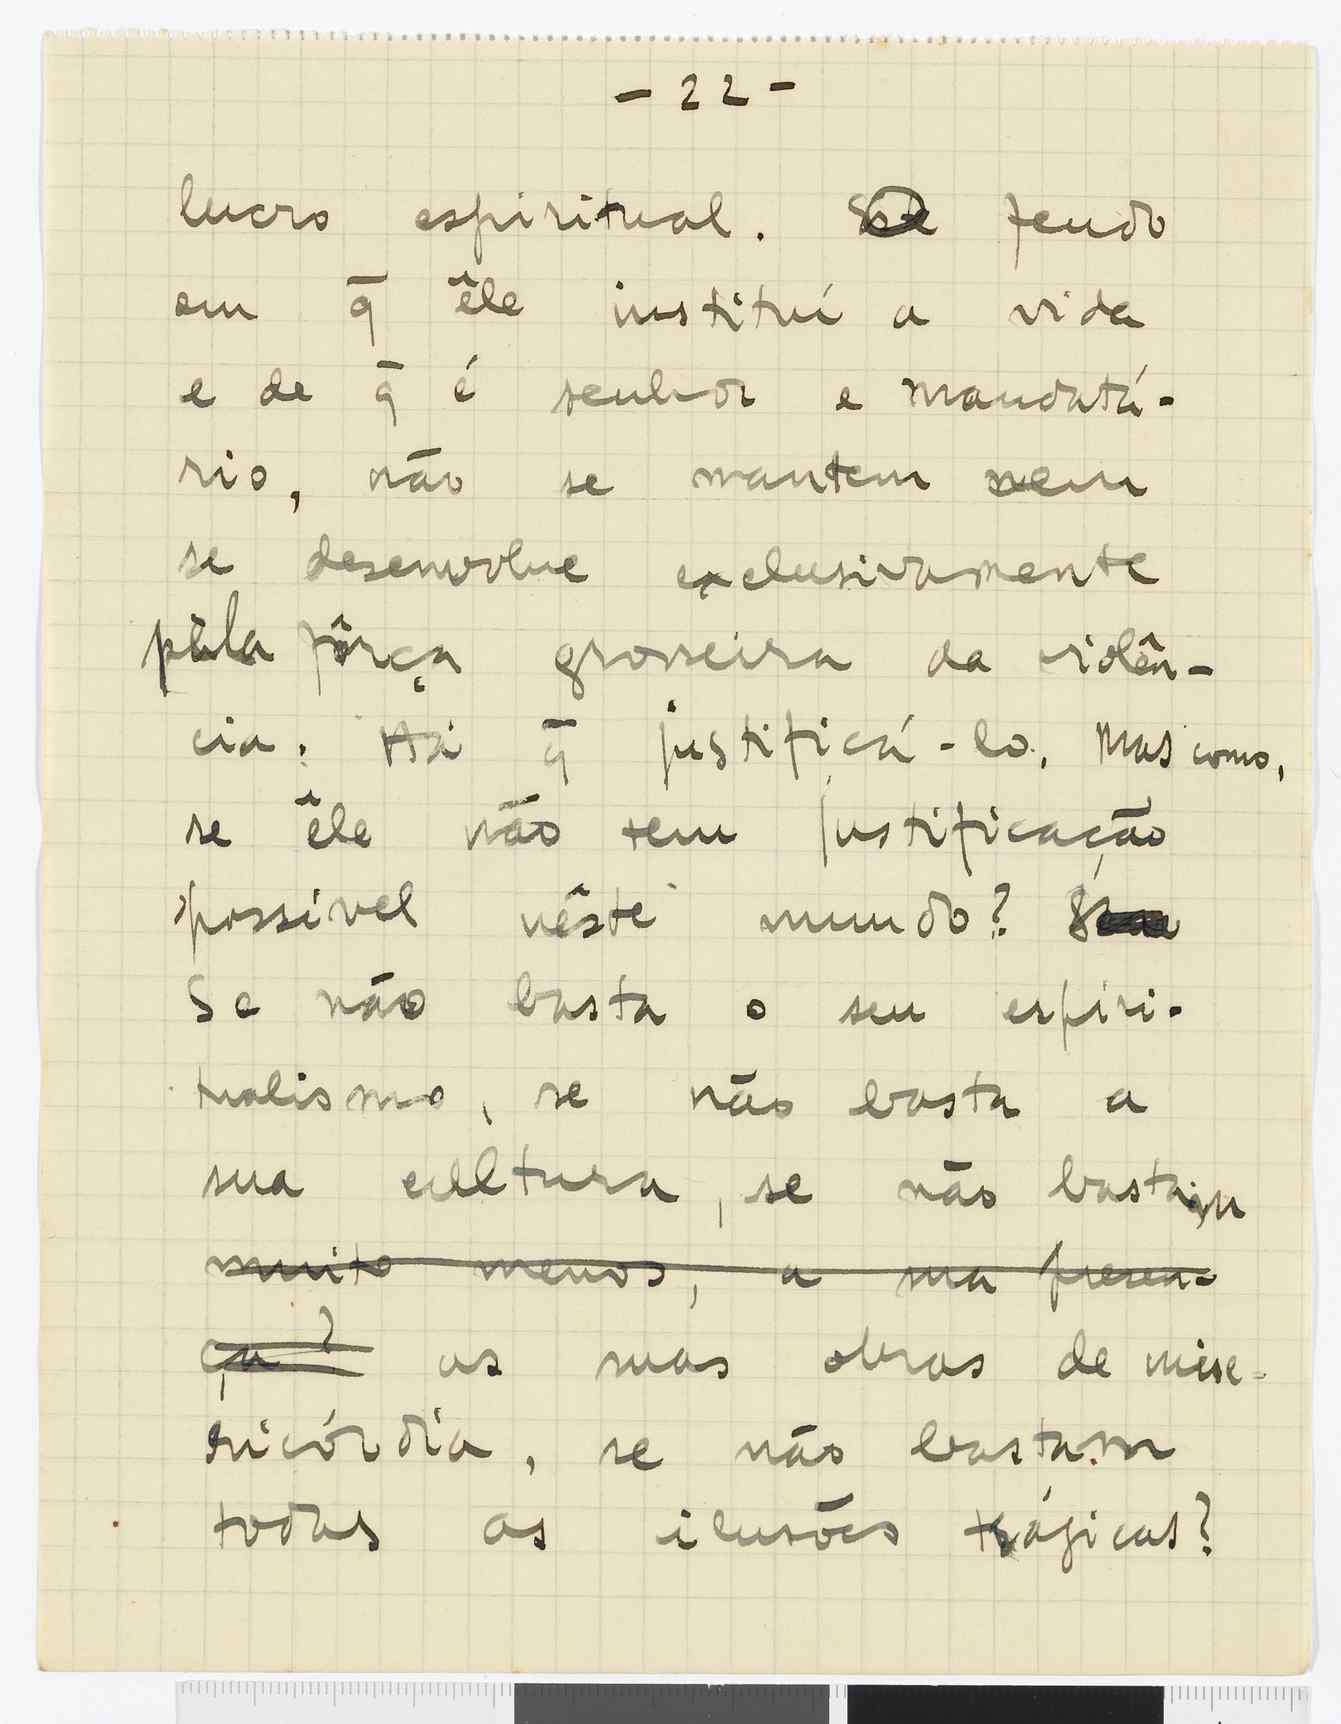 - 22 -
lucro espiritual. feudo
em q̄ êle instituí a vida
e de q̄ é senhor e mandatá-
rio, não se mantem nem
se desenvolve exclusivamente
pela fôrça grosseira da violên-
cia. Há q̄ justificá-lo. Mas como,
se êle não tem justificação
possível nêste mundo?
Se não basta o seu espiri-
tualismo, se não basta a
sua cultura, se não bastam
muito menos, a sua presen-
ça? as suas obras de mise-
ricórdia, se não bastam
todas as ilusões trágicas?